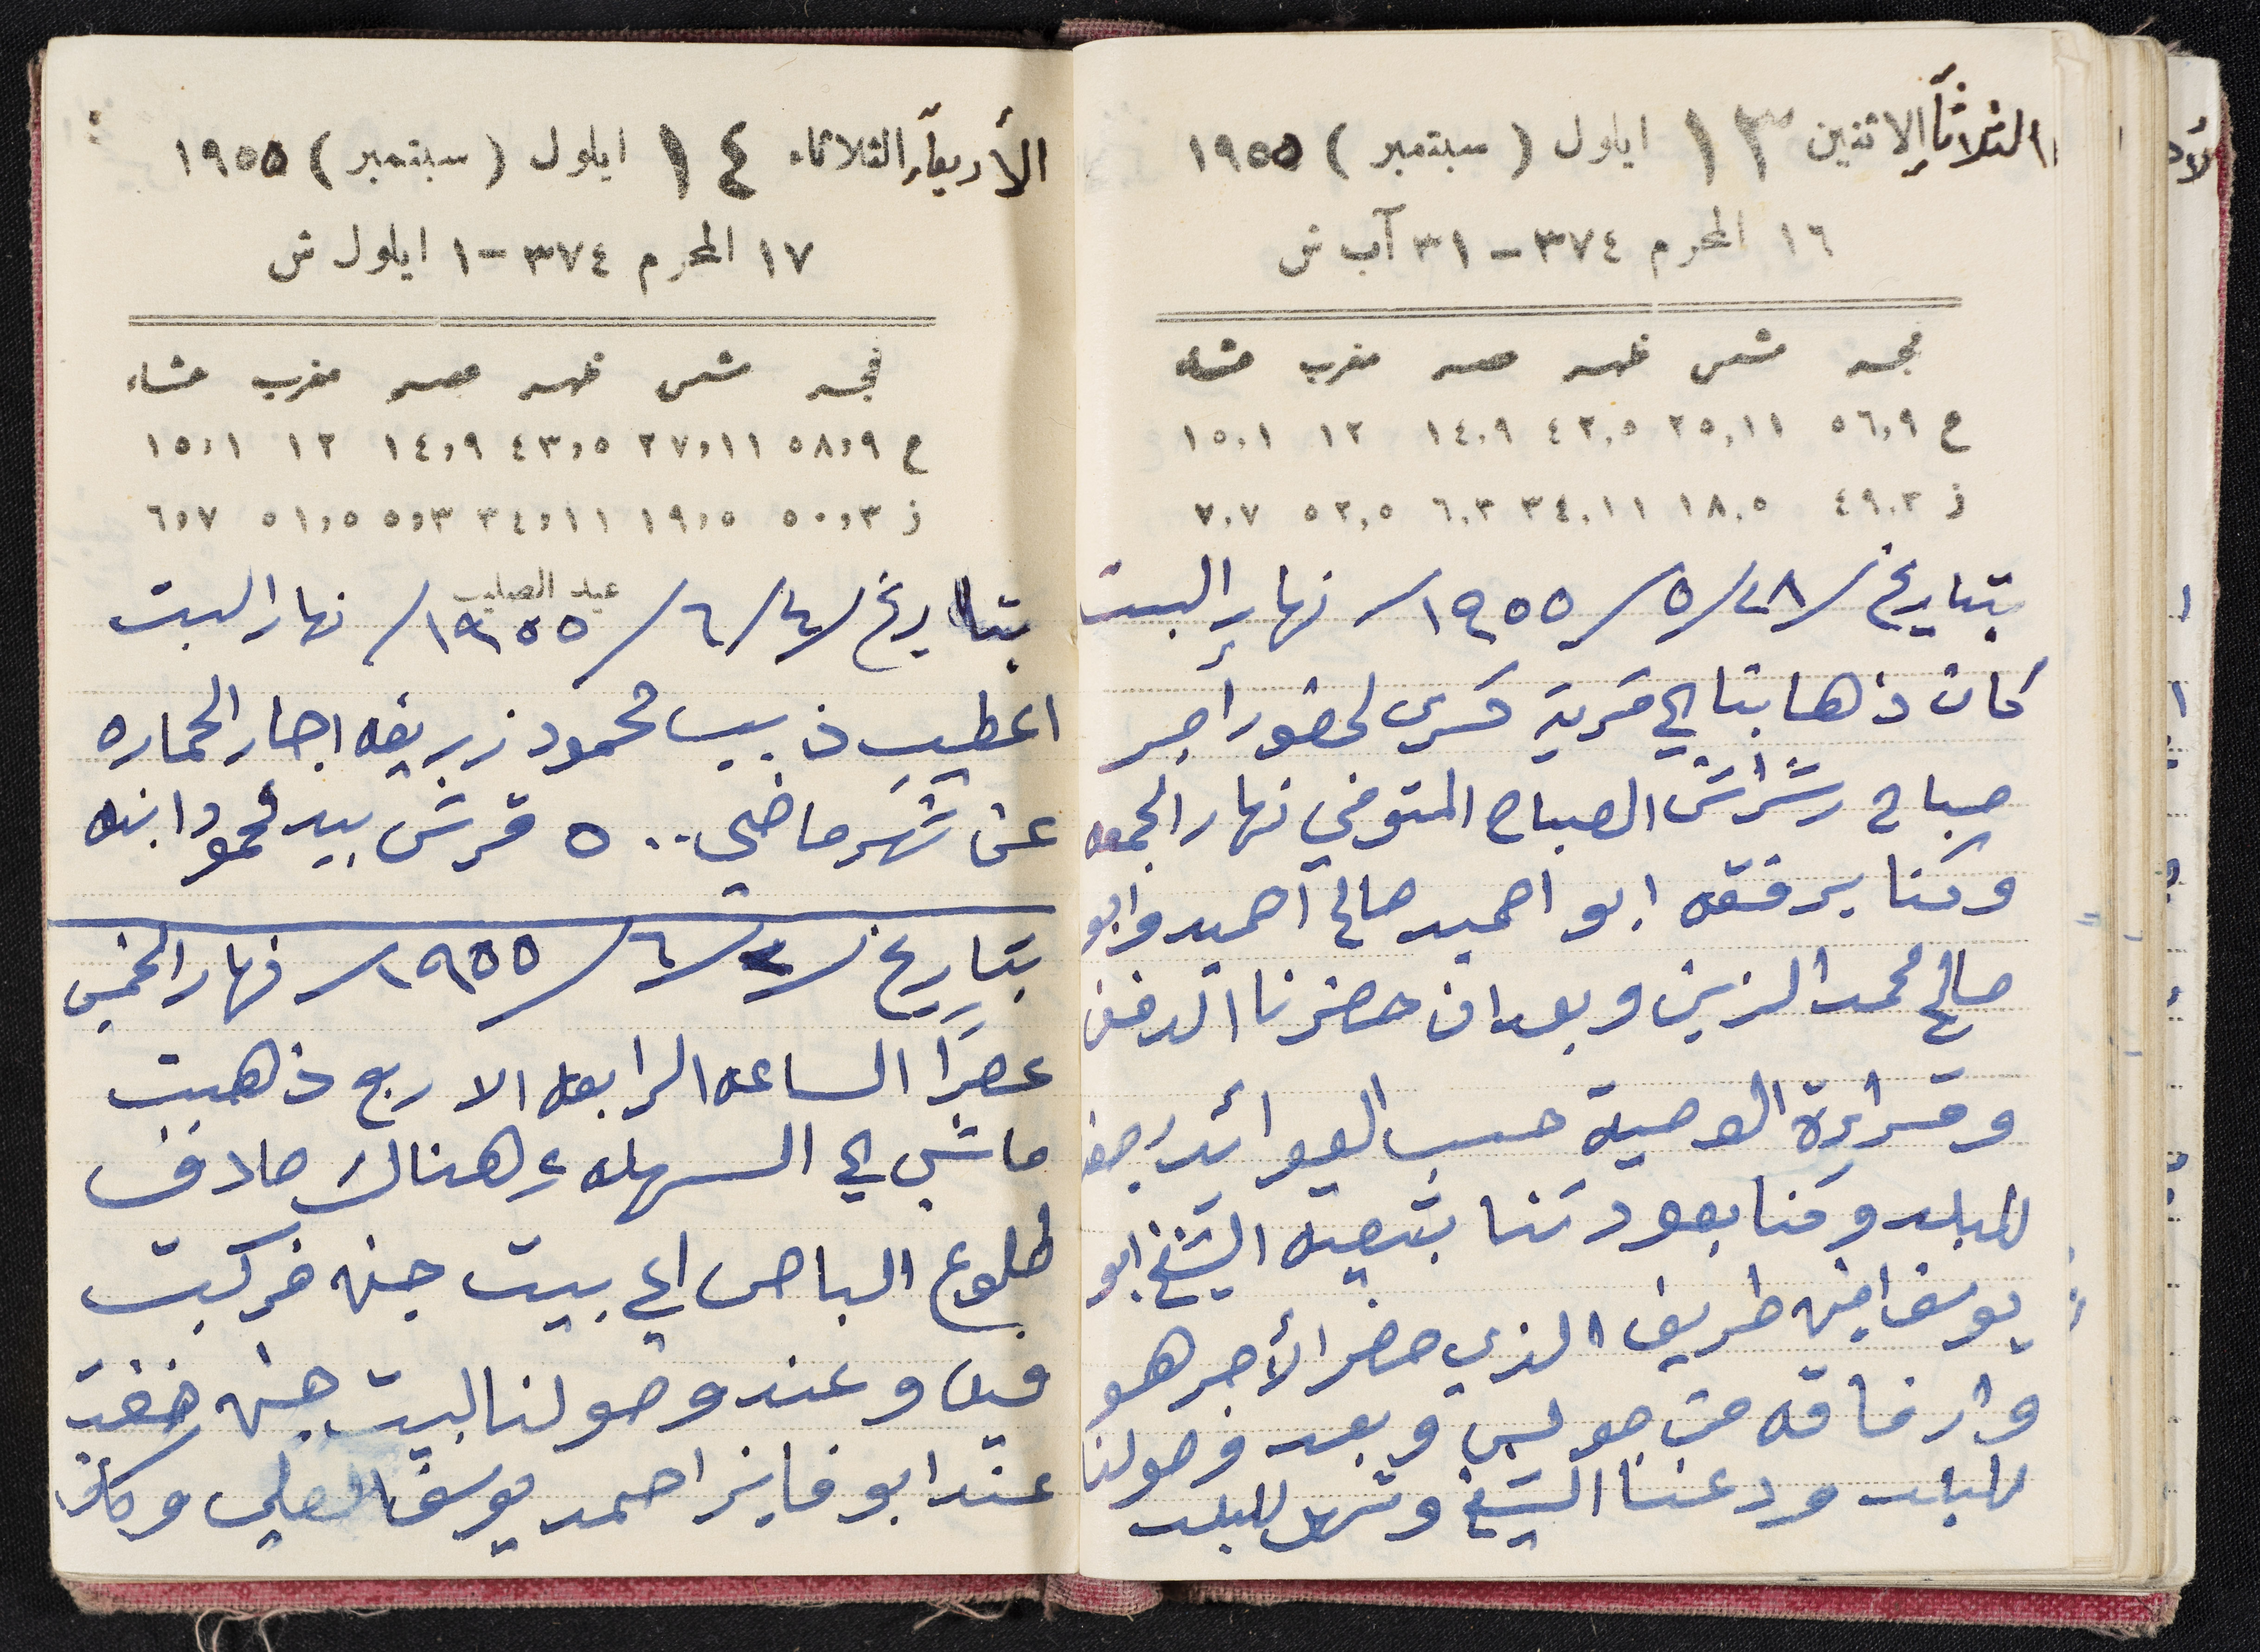 الثلاثاء الاثنين ١٣ ايلول (سبتمبر) ١٩٥٥
١٦ المحرم ٣٧٤ - ٣١ آب ش
فجر شمس ظهر عصر مغرب عشاء
ع ٥٦،٩ ٢٥،١١ ٤٢،٥ ١٤،٩ ١٢ ١٥،١
ز ٤٩،٣ ١٨،٥ ٣٤،١١ ٦،٣ ٥٢،٥ ٧،٧
بتاريخ /٢٨/ ٥/ ١٩٥٥/ نهار السبت
كان ذهابنا الى قرية كسرى لحضور أجر
صباح رشراش الصباح المتوفي نهار الجمعه
وكنا برفقه ابو احميد صالح احميد وابو
صالح محمد الزين وبعد ان حضرنا الدفن
وقراءة الوصية حسب العوائد
للبلد وكنا بعودتنا بتبعيه الشيخ ابو
يوسف امين طريف الذي حضر الأجر هو
وارفاقه من جولس وبعد وصولنا
للبلد ودعنا الشيخ ونزل للبلد
الأربعاء الثلاثاء ١٤ ايلول (سبتمبر) ١٩٥٥
١٧ المحرم ٣٧٤ - ١ ايلول ش
فجر شمس ظهر عصر مغرب عشاء
ع ٥٨،٩ ٢٧،١١ ٤٣،٥ ١٤،٩ ١٢ ١٥،١
ز ٥٠،٣ ١٩،٥ ٣٤،١١ ٥،٣ ٥١،٥ ٦،٧
عيد الصليب
بتاريخ /٤/ ٦/ ١٩٥٥/ نهار السبت
اعطيت ذيب محمود زريقه اجار الحماره
عن شهر ماضي ٥٠٠ قرش بيد محمود ابنه
بتاريخ /٢/ ٦/ ١٩٥٥/ نهار الخميس
عصرًا الساعه الرابعه الا ربع ذهبت
ماشي الى السهله وهناك صادف
طلوع الباص الى بيت جن فركبت
فيه وعند وصولنا لبيت جن
عند ابو فايز احمد يوسف العلي وكان